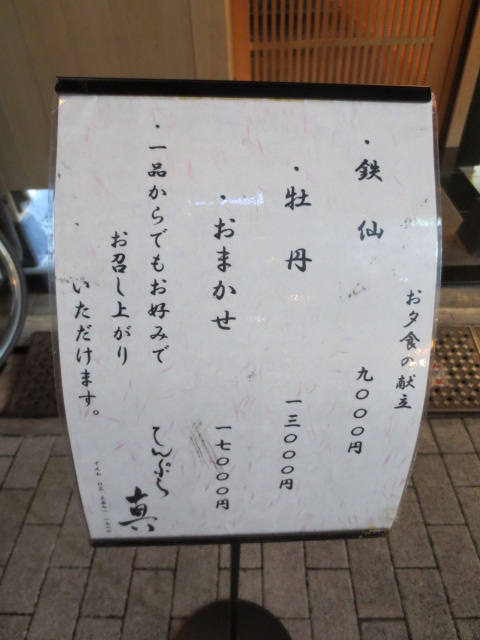 お夕食の献立
・鉄仙
九〇〇〇円
・牡丹
一三〇〇〇円
・おまかせ
一七〇〇〇円
・一品からでもお好みで
お召し上がり
いただけます。
てんぷら
真